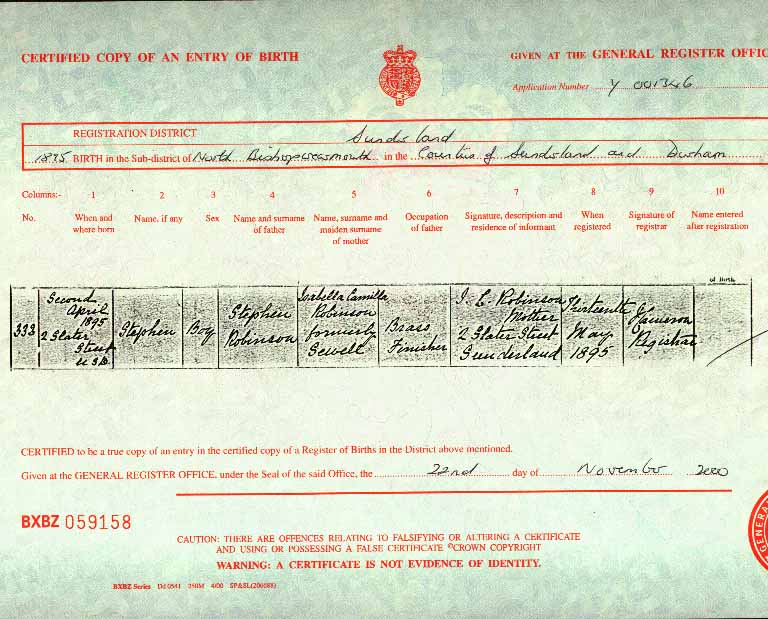 CERTIFIED COPY OF AN ENTRY OF BIRTH
GIVEN AT THE GENERAL REGISTER OFFIC
Application Number Y 001346
REGISTRATION DISTRICT Sunderland
1895 BIRTH in the Sub-district of North Bishopwearmouth in the Counties of Sunderland and Durham
Columns:- 1 2 3 4 5 6 7 8 9 10
No. When and where born Name, if any Sex Name and surname of father Name, surname and maiden surname of mother Occupation of father Signature, description and residence of informant When registered Signature of registrar Name entered after registration
333
Second
April
1895
2 Slater
Street
Stephen
Boy
Stephen
Robinson
Isabella Camilla
Robinson
formerly
Sewell
Brass
Finisher
I. C. Robinson
Mother
2 Slater Street
Sunderland
Thirteenth
May
1895
Registrar
CERTIFIED to be a true copy of an entry in the certified copy of a Register of Births in the District above mentioned.
Given at the GENERAL REGISTER OFFICE, under the Seal of the said Office, the 22nd day of November 2000
BXBZ 059158
CAUTION: THERE ARE OFFENCES RELATING TO FALSIFYING OR ALTERING A CERTIFICATE
AND USING OR POSSESSING A FALSE CERTIFICATE ©CROWN COPYRIGHT
WARNING: A CERTIFICATE IS NOT EVIDENCE OF IDENTITY.
BXBZ Series Dd 0541 250M 4/00 SP&SL(200688)
GENERAL